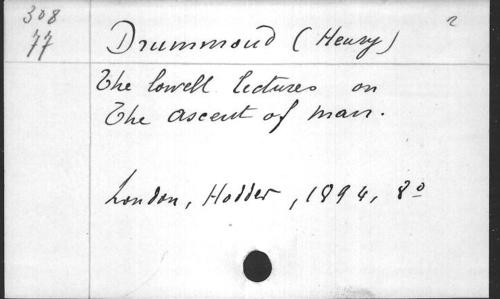 308
77
Drummond (Henry)
2
The lowell lectures on
The ascent of man.
London, Hodder, 1894, 8o